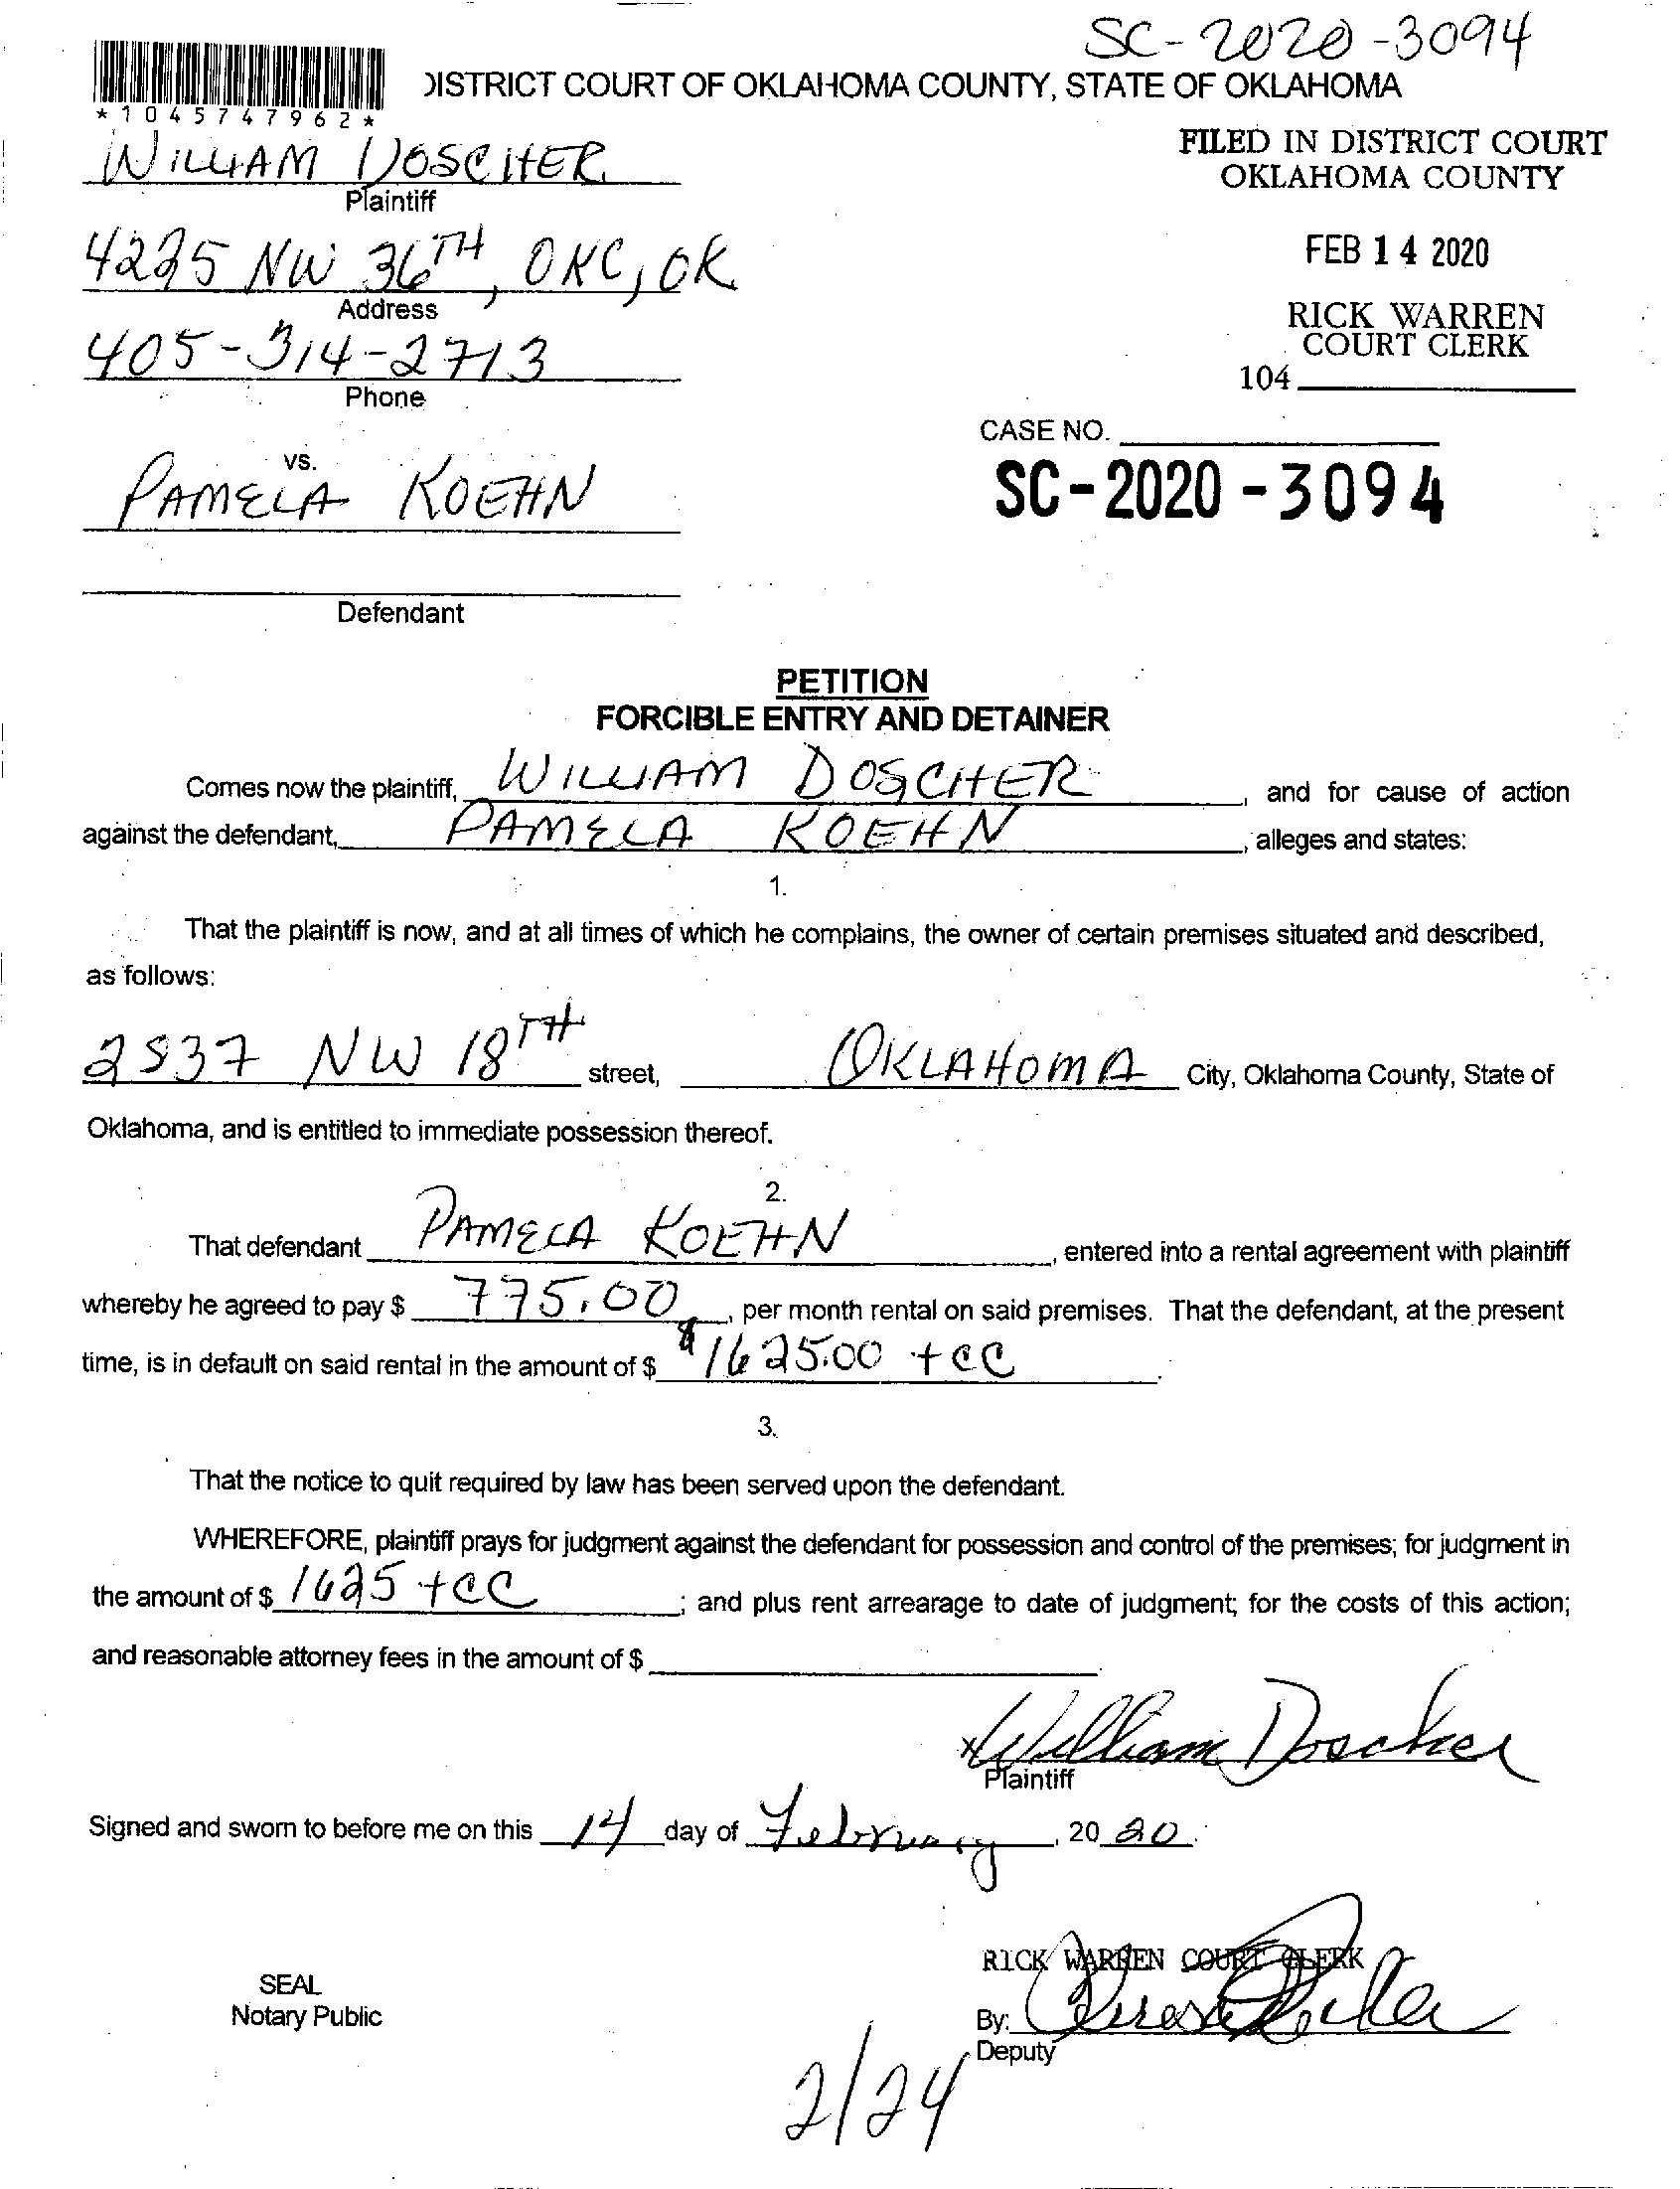 SC-2020-3094
DISTRICT COURT OF OKLAHOMA COUNTY, STATE OF OKLAHOMA
*1045747962*
FILED IN DISTRICT COURT
OKLAHOMA COUNTY
WILLIAM DOSCHER
Plaintiff
FEB 14 2020
4225 NW 36TH, OKC, OK
Address
RICK WARREN
COURT CLERK
405-314-2713
104
Phone
CASE NO.
vs.
PAMELA KOEHN
SC-2020-3094
Defendant
PETITION
FORCIBLE ENTRY AND DETAINER
Comes now the plaintiff, WILLIAM DOSCHER, and for cause of action
against the defendant, PAMELA KOEHN, alleges and states:
1.
That the plaintiff is now, and at all times of which he complains, the owner of certain premises situated and described,
as follows:
2837 NW 18TH street, OKLAHOMA City, Oklahoma County, State of
Oklahoma, and is entitled to immediate possession thereof.
2.
That defendant PAMELA KOEHN, entered into a rental agreement with plaintiff
whereby he agreed to pay $ 775.00, per month rental on said premises. That the defendant, at the present
time, is in default on said rental in the amount of $ $1625.00 +CC.
3.
That the notice to quit required by law has been served upon the defendant.
WHEREFORE, plaintiff prays for judgment against the defendant for possession and control of the premises; for judgment in
the amount of $ 1625 +CC; and plus rent arrearage to date of judgment; for the costs of this action;
and reasonable attorney fees in the amount of $
x William Doscher
Plaintiff
Signed and sworn to before me on this 14 day of February, 20 20.
RICK WARREN COURT CLERK
SEAL
Notary Public
By:
Deputy
2/24